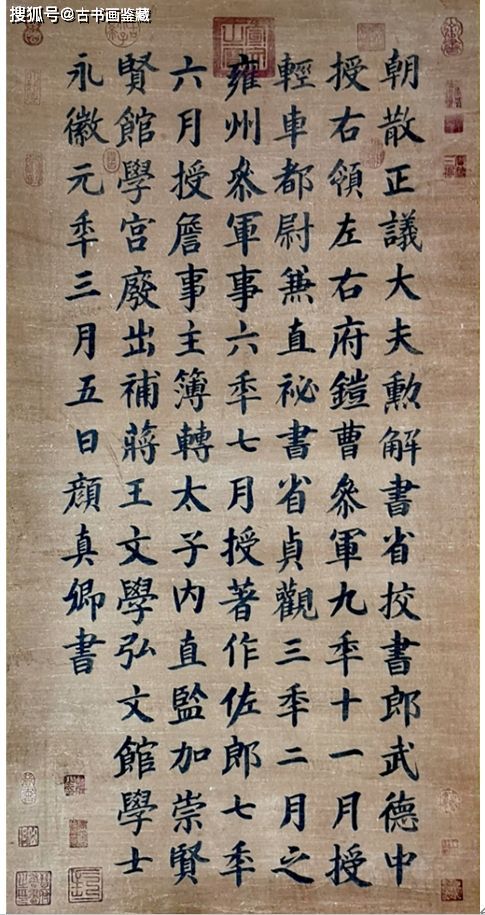 搜狐号@古书画鉴藏
朝散正議大夫勲解書省挍書郎武德中
授右領左右府鎧曹叅軍九秊十一月授
輕車都尉兼直祕書省貞觀三秊二月之
雍州叅軍事六秊七月授著作佐郎七秊
六月授詹事主簿轉太子内直監加崇賢
賢館學宫廢出補蔣王文學弘文館學士
永徽元秊三月五日顔真卿書